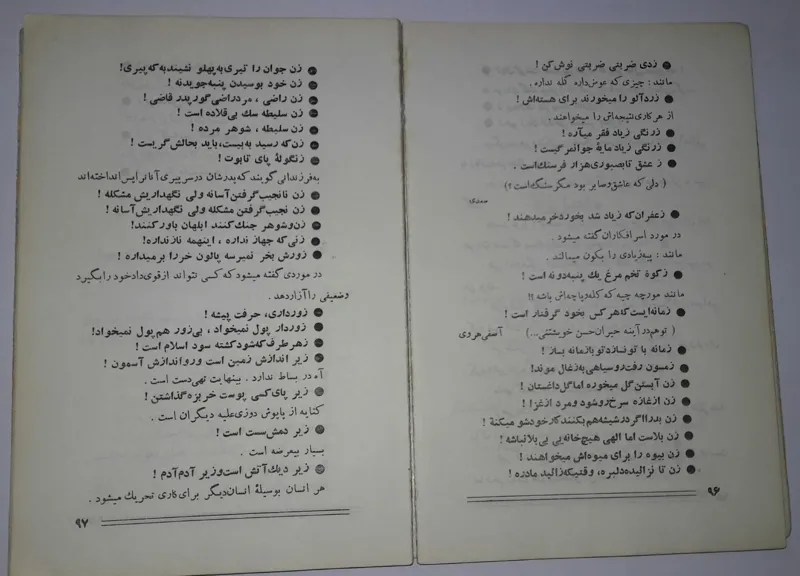 ● زدی ضربتی ضربتی نوش کن !
مانند : چیزی که عوض داره گله نداره .
● زردآلو را میخورند برای هسته‌اش !
از هر کاری نتیجه‌اش را میخواهند .
● زرنگی زیاد فقر میآره !
● زرنگی زیاد مایهٔ جوانمرگیست !
● ز عشق تا بصبوری هزار فرسنگ است .
( دلی که عاشق و صابر بود مگر سنگ است ؟)
سعدی
● زعفران که زیاد شد بخورد خر میدهند !
در مورد اسرافکاران گفته میشود .
مانند : پیه زیادی را بکون میمالند .
● زکوة تخم مرغ یك پنبه‌دونه است !
مانند مورچه چیه که کله پاچه‌اش باشه !!
● زمانه ایست که هر کس بخود گرفتار است !
( تو هم در آینه حیران حسن خویشتنی...) آصفی هروی
● زمانه با تو نسازد تو با زمانه بساز !
● زمستون رفت و روسیاهی به زغال موند !
● زن آبستن گل میخوره اما گل داغستان !
● زن از غازه سرخ رو شود و مرد از غزا !
● زن بد را اگر در شیشه هم بکنند کار خودشو میکنه !
● زن بلاست اما الهی هیچ خانه‌یی بی‌بلا نباشه !
● زن بیوه را برای میوه‌اش میخواهند !
● زن تا نزائیده دلبره، وقتیکه زائید مادره !
۹۶
● زن جوان را تیری به پهلو نشیند به که پیری !
● زن خود بوسیدن پنبه جویدنه !
● زن راضی ، مرد راضی گور پدر قاضی !
● زن سلیطه سگ بی‌قلاده است !
● زن سلیطه ، شوهر مرده !
● زن که رسید به بیست، باید بحالش گریست !
● زنگولهٔ پای تابوت !
به فرزندانی گویند که پدرشان در سر پیری آنانرا پس انداخته‌اند
● زن نانجیب گرفتن آسانه ولی نگهداریش مشکله !
● زن نجیب گرفتن مشکله ولی نگهداریش آسانه !
● زن و شوهر جنگ کنند ابلهان باور کنند !
● زنی که جهاز نداره ، اینهمه ناز نداره !
● زورش بخر نمیرسه پالون خر را بر میداره !
در موردی گفته میشود که کسی نتواند از قوی داد خود را بگیرد
و ضعیفی را آزار دهد .
● زورداری، حرفت پیشه !
● زوردار پول نمیخواد ، بی زور هم پول نمیخواد!
● ز هر طرف که شود کشته سود اسلام است !
● زیر اندازش زمین است و رواندازش آسمون !
آه در بساط ندارد . بینهایت تهی دست است .
● زیر پای کسی پوست خربزه گذاشتن !
کنایه از پاپوش دوزی علیه دیگران است .
● زیر دمش سست است !
بسیار بیعرضه است .
● زیر دیگ آتش است و زیر آدم آدم !
هر انسان بوسیلهٔ انسان دیگر برای کاری تحریك میشود .
۹۷